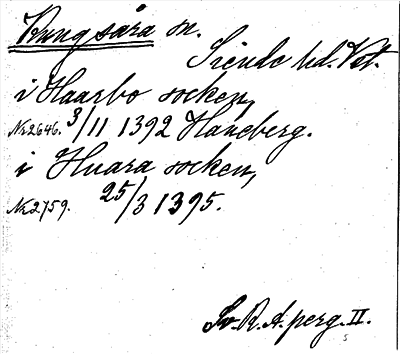 Kungsåra sn.
Siende hd. Vstm.
i Haarbo socken,
Nr 2646. 3/11 1392 Haneberg.
i Huara socken,
Nr 2759. 25/3 1395.
Sv. R. A. perg. II.